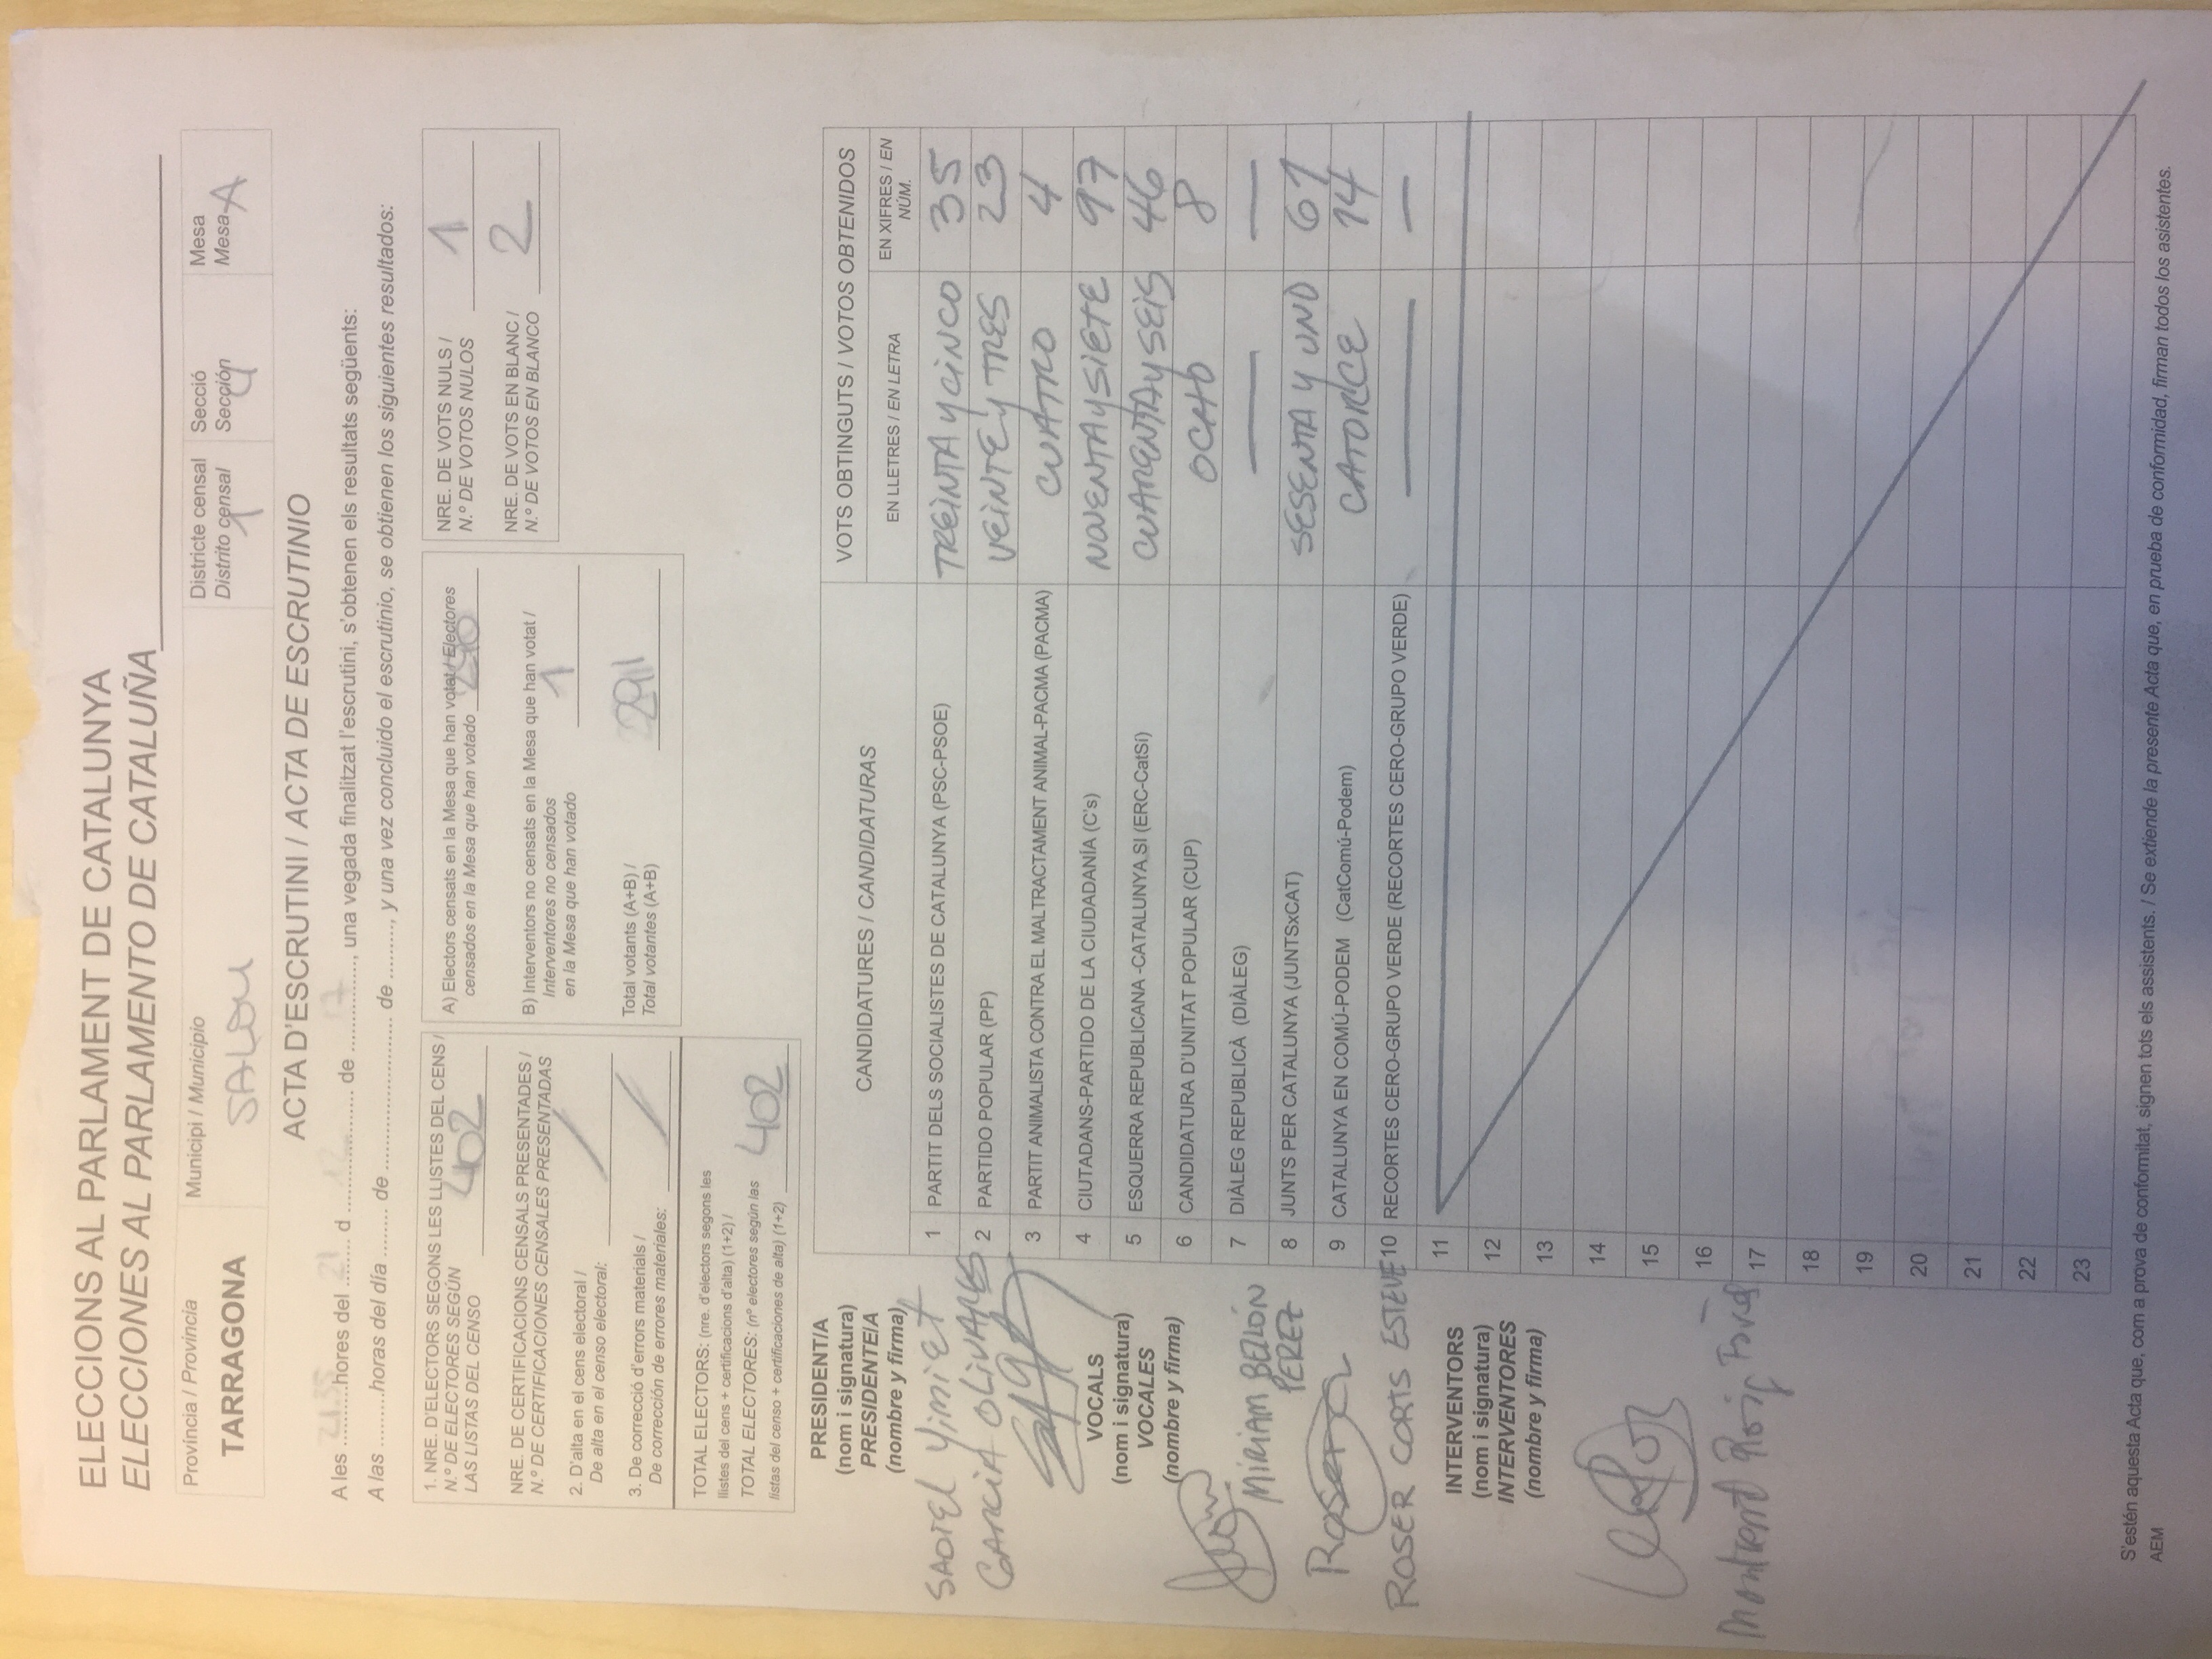 ELECCIONS AL PARLAMENT DE CATALUNYA
ELECCIONES AL PARLAMENTO DE CATALUÑA
Província / Provincia
TARRAGONA
Municipi / Municipio
SALOU
Districte censal
Distrito censal
1
Secció
Sección
4
Mesa
Mesa
A
ACTA D'ESCRUTINI / ACTA DE ESCRUTINIO
A les 21.35 hores del 21 d 12 de 17, una vegada finalitzat l'escrutini, s'obtenen els resultats següents:
A las .........horas del día ........ de ............................ de ........., y una vez concluido el escrutinio, se obtienen los siguientes resultados:
1. NRE. D'ELECTORS SEGONS LES LLISTES DEL CENS /
N.º DE ELECTORES SEGÚN
LAS LISTAS DEL CENSO 402
NRE. DE CERTIFICACIONS CENSALS PRESENTADES /
N.º DE CERTIFICACIONES CENSALES PRESENTADAS
2. D'alta en el cens electoral /
De alta en el censo electoral: /
3. De correcció d'errors materials /
De corrección de errores materiales: /
TOTAL ELECTORS: (nre. d'electors segons les
llistes del cens + certificacions d'alta) (1+2) /
TOTAL ELECTORES: (nº electores según las
listas del censo + certificaciones de alta) (1+2) 402
A) Electors censats en la Mesa que han votat / Electores
censados en la Mesa que han votado 290
B) Interventors no censats en la Mesa que han votat /
Interventores no censados
en la Mesa que han votado 1
Total votants (A+B) /
Total votantes (A+B) 291
NRE. DE VOTS NULS /
N.º DE VOTOS NULOS 1
NRE. DE VOTS EN BLANC /
N.º DE VOTOS EN BLANCO 2
PRESIDENT/A
(nom i signatura)
PRESIDENTE/A
(nombre y firma)
SAOIEL YIMIET
GARCIA OLIVARES
VOCALS
(nom i signatura)
VOCALES
(nombre y firma)
MIRIAM BELLÓN
PEREZ
Roser
ROSER CORTS ESTEVE
INTERVENTORS
(nom i signatura)
INTERVENTORES
(nombre y firma)
Montserrat Roig
CANDIDATURES / CANDIDATURAS
VOTS OBTINGUTS / VOTOS OBTENIDOS
EN LLETRES / EN LETRA
EN XIFRES / EN
NÚM.
1 PARTIT DELS SOCIALISTES DE CATALUNYA (PSC-PSOE) TREINTA y CINCO 35
2 PARTIDO POPULAR (PP) VEINTE y TRES 23
3 PARTIT ANIMALISTA CONTRA EL MALTRACTAMENT ANIMAL-PACMA (PACMA) CUATRO 4
4 CIUTADANS-PARTIDO DE LA CIUDADANÍA (C's) NOVENTA y SIETE 97
5 ESQUERRA REPUBLICANA -CATALUNYA SI (ERC-CatSí) CUARENTA y SEIS 46
6 CANDIDATURA D'UNITAT POPULAR (CUP) OCHO 8
7 DIÀLEG REPUBLICÀ (DIÀLEG) — —
8 JUNTS PER CATALUNYA (JUNTSxCAT) SESENTA Y UNO 61
9 CATALUNYA EN COMÚ-PODEM (CatComú-Podem) CATORCE 14
10 RECORTES CERO-GRUPO VERDE (RECORTES CERO-GRUPO VERDE) — —
11
12
13
14
15
16
17
18
19
20
21
22
23
S'estén aquesta Acta que, com a prova de conformitat, signen tots els assistents. / Se extiende la presente Acta que, en prueba de conformidad, firman todos los asistentes.
AEM